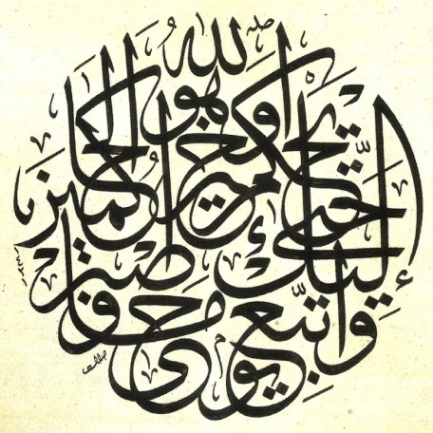 واتبع ما يوحى إليك واصبر حتى يحكم الله وهو خير الحاكمين